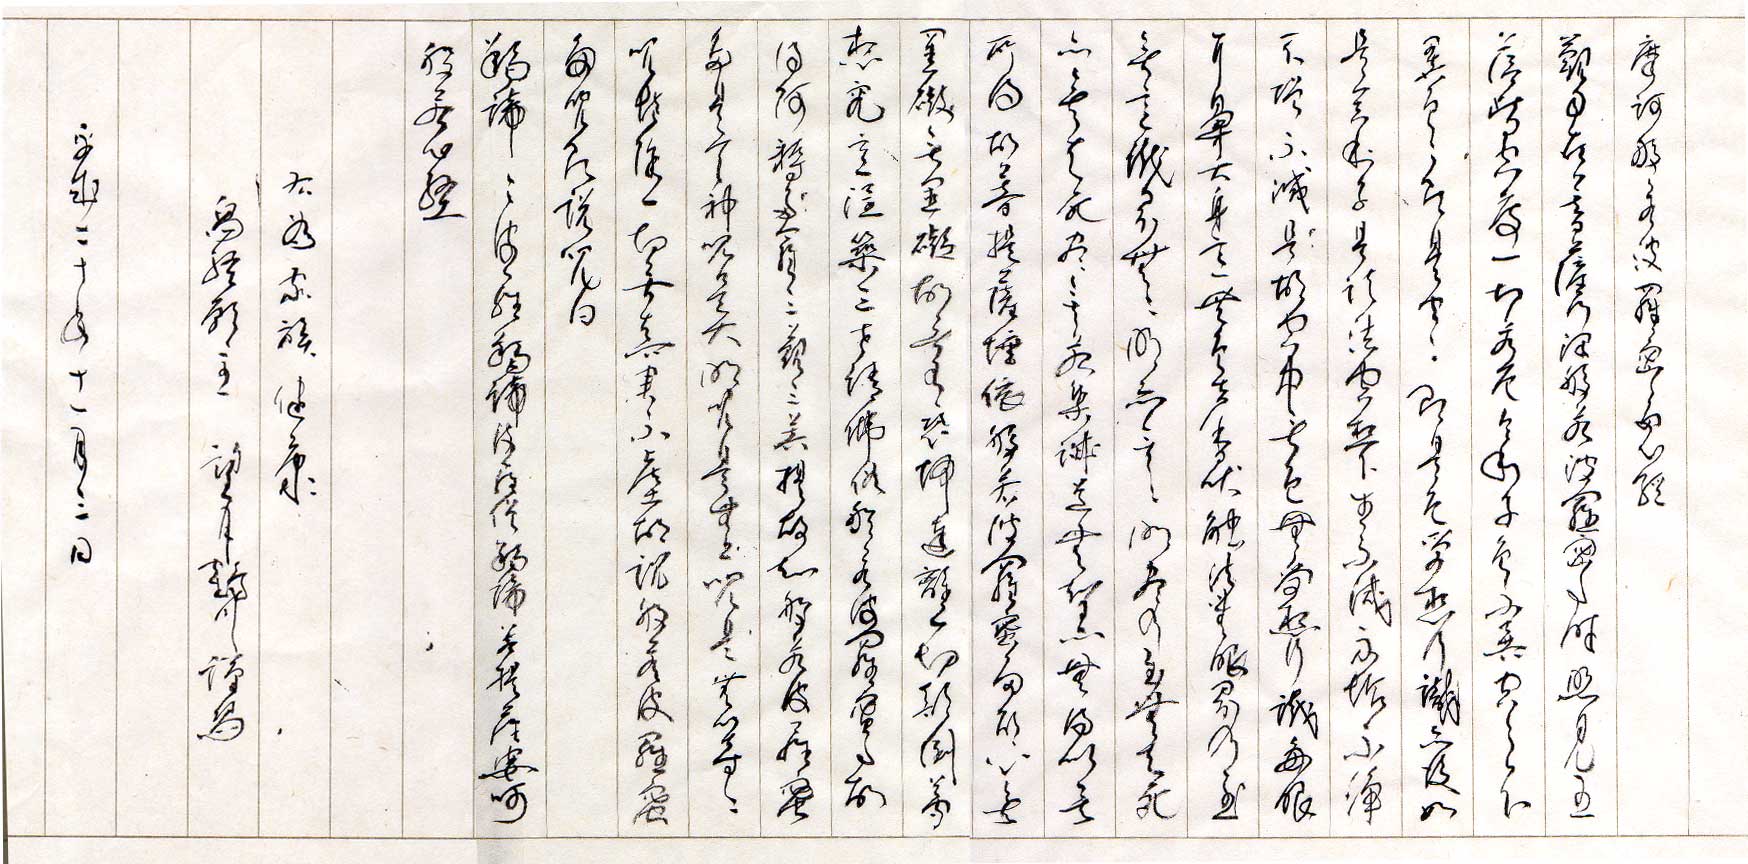 摩訶般若波羅蜜多心経
観自在菩薩行深般若波羅蜜多時照見五
蘊皆空度一切苦厄舎利子色不異空々不
異色々即是空々即是色受想行識亦復如
是舎利子是諸法空想不生不滅不垢不浄
不増不減是故空中無色無受想行識無眼
耳鼻舌身意無色声香味触法無眼界乃至
無意識界無々明亦無々明尽乃至無老死
亦無老死尽無苦集滅道無智亦無得以無
所得故菩提薩埵依般若波羅蜜多故心無
罣礙無罣礙故無有恐怖遠離一切顛倒夢
想究竟涅槃三世諸佛依般若波羅蜜多故
得阿耨多羅三藐三菩提故知般若波羅蜜
多是大神呪是大明呪是無上呪是無等々
呪能除一切苦真実不虚故説般若波羅蜜
多呪即説呪曰
羯諦々々波羅羯諦波羅僧羯諦菩提薩婆呵
般若心経
右為家族健康
写経願主 望月 謹写
平成二十年十一月二日